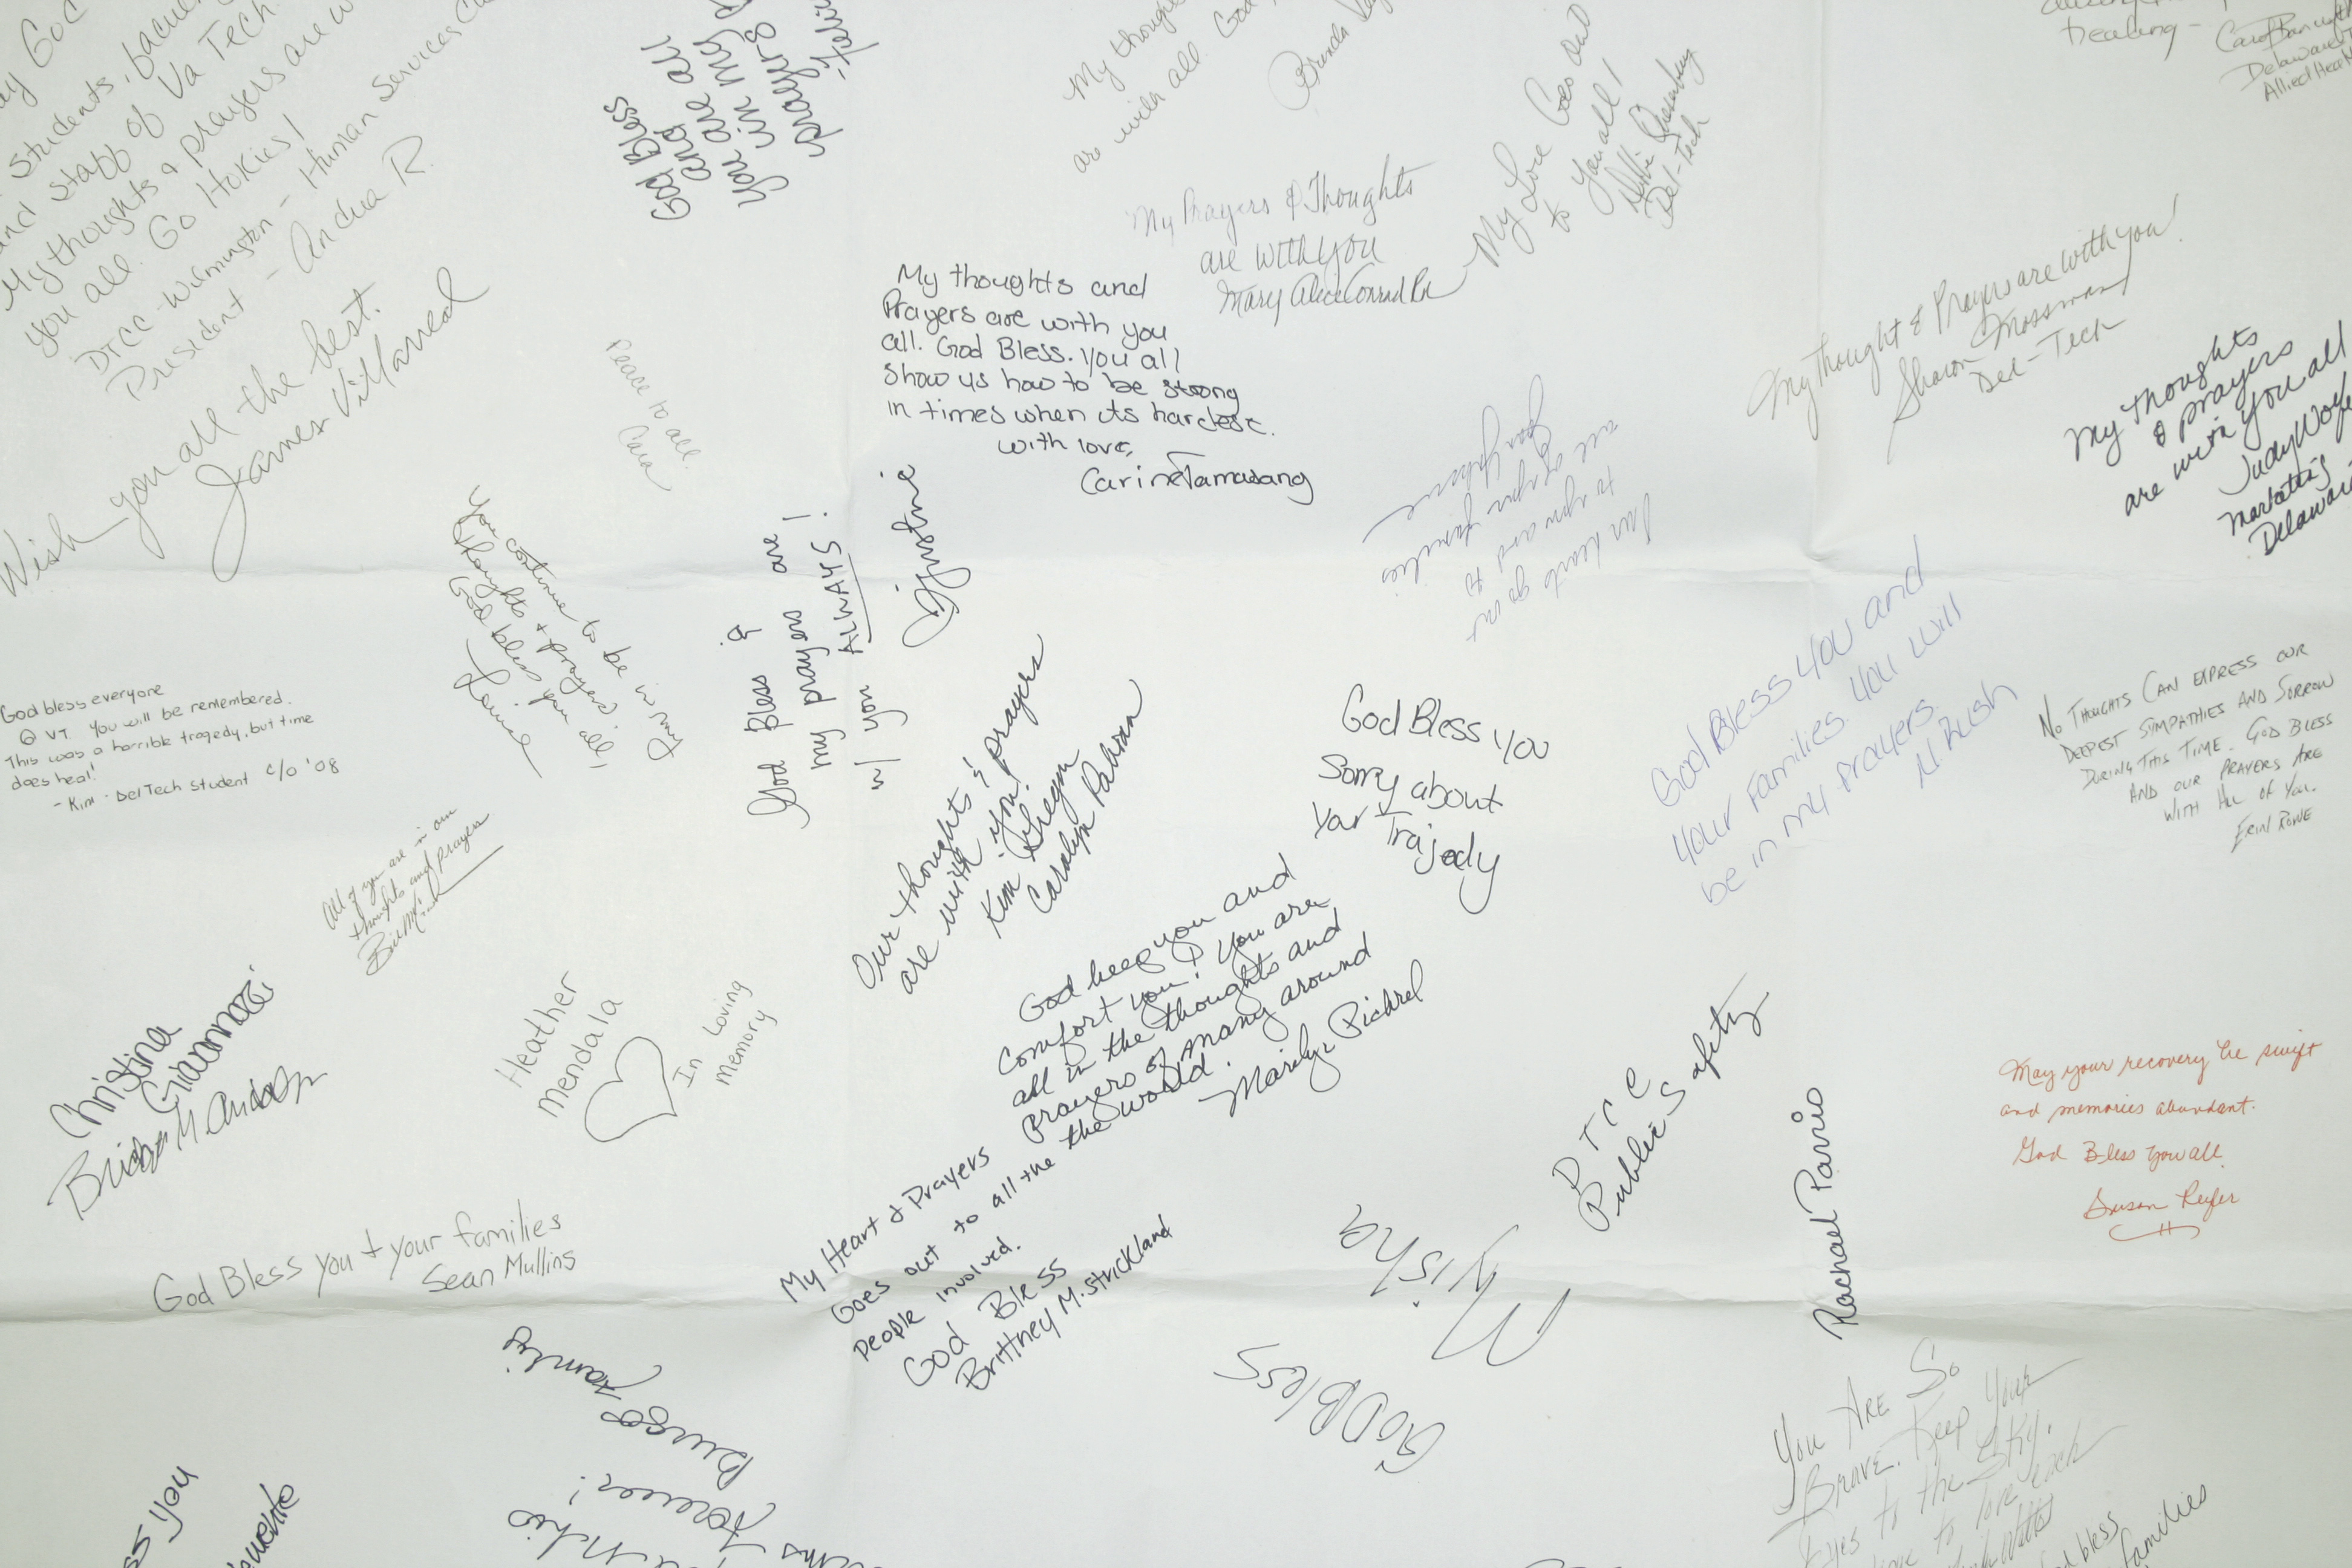 Students,
and Staff of Va Tech
My thoughts & prayers are w
you all. Go Hokies!
DTCC-Wilmington - Human Services
President - Andrea R.
Wish you all the best.
James Villarreal
God Bless
and all
you are all
you in my
prayers
My thoughts
are with all. God
Brenda
My Prayers & Thoughts
are with you
Mary Alice Conrad
My Love Goes out
to you all!
Debbie Quesenberry
Del-Tech
healing-
Delaware
Allied Health
My thoughts and
Prayers are with you
all. God Bless. You all
Show us how to be strong
in times when its hardest.
with love,
Carine Tamasang
Peace to all.
Cara
My thought & Prayers are with you!
Sharon Mossman
Del-Tech
My Thoughts
& prayers
are with you all
Judy
Marketing
Delaware
Our hearts go out
to you and to
all of your families
You continue to be in my
thoughts & prayers.
God bless you all,
God Bless & are!
my prayers ALWAYS
w/ you
Justine
God bless everyone
@ VT. You will be remembered.
This was a horrible tragedy, but time
does heal!
- Kim - DelTech Student c/o '08
All of you are in our
thoughts and prayers
Our thoughts & prayers
are with you!
Kim Shegan
Carolyn
God Bless you
Sorry about
Your
Trajedy
God Bless you and
your families. You will
be in my prayers.
N. Rush
No Thoughts Can express our
deepest sympathies and sorrow
during this time. God Bless
and our prayers are
with all of you.
Erin Rowe
God keep you and
comfort you! You are
all in the thoughts and
prayers of many around
the world.
Marilyn Pichrel
Christina
Heather
Mendala
In Loving
Memory
God Bless you + your families
Sean Mullins
My Heart & Prayers
Goes out to all the
people involved.
God Bless
Brittney M. Strickland
DTCC
Public Safety
Rachael Parris
May your recovery be swift
and memories abundant.
God Bless you all.
Susan
Nisha
GOD Bless
family
Forever!
ss you
You Are So
Brave. Keep Your
Eyes to the Sky.
to love each
bless
families